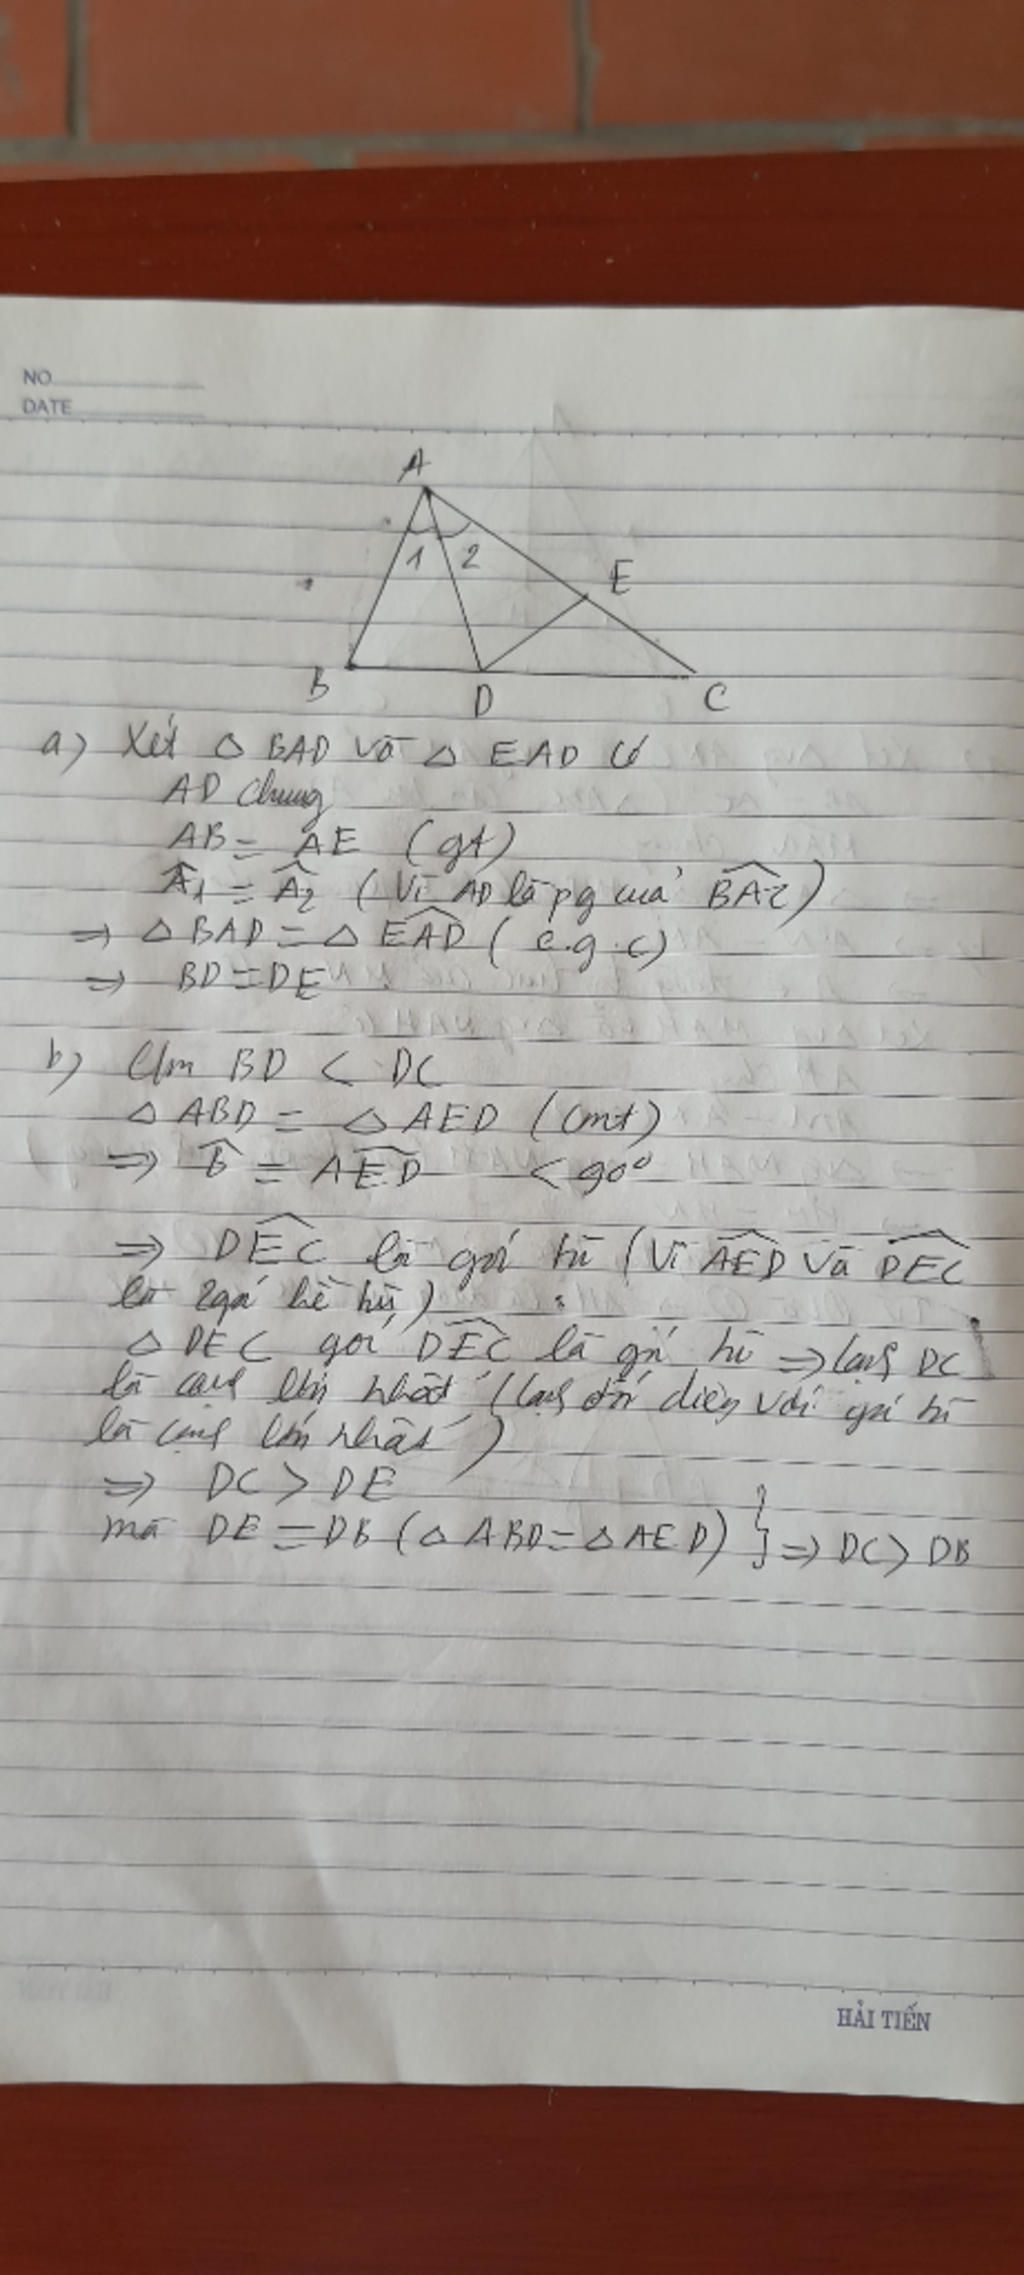 NO
DATE
A
1 2
E
B D C
a) Xét △ BAD và △ EAD có
AD chung
AB = AE (gt)
Â1 = Â2 (Vì AD là pg của BAC)
⇒ △ BAD = △ EAD (c.g.c)
⇒ BD = DE
b) C/m BD < DC
△ ABD = △ AED (cmt)
⇒ B̂ = AED < 90°
⇒ DEC là góc tù (Vì AED và DEC
là 2 góc kề bù)
△ DEC góc DEC là góc tù ⇒ cạnh DC
là cạnh lớn nhất (cạnh đối diện với góc tù
là cạnh lớn nhất)
⇒ DC > DE
mà DE = DB (△ ABD = △ AED) } ⇒ DC > DB
HẢI TIẾN